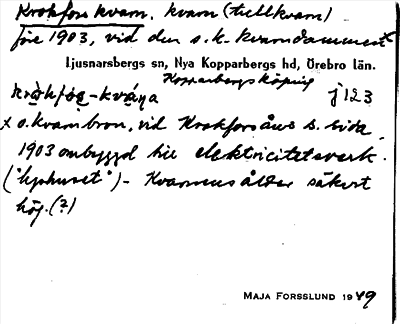 Krokfors kvarn. kvarn (tullkvarn)
före 1903, vid den s.k. kvarndammen x
Ljusnarsbergs sn, Nya Kopparbergs hd, Örebro län.
Kopparbergs köping
kròkfǫs-kvá̱ṇa j 123
x o. kvarnbron, vid Krokforsåns s. sida.
1903 ombyggd till elektricitetsverk.
("lyshuset") - Kvarnens ålder säkert
hög. (?)
MAJA FORSSLUND 1949